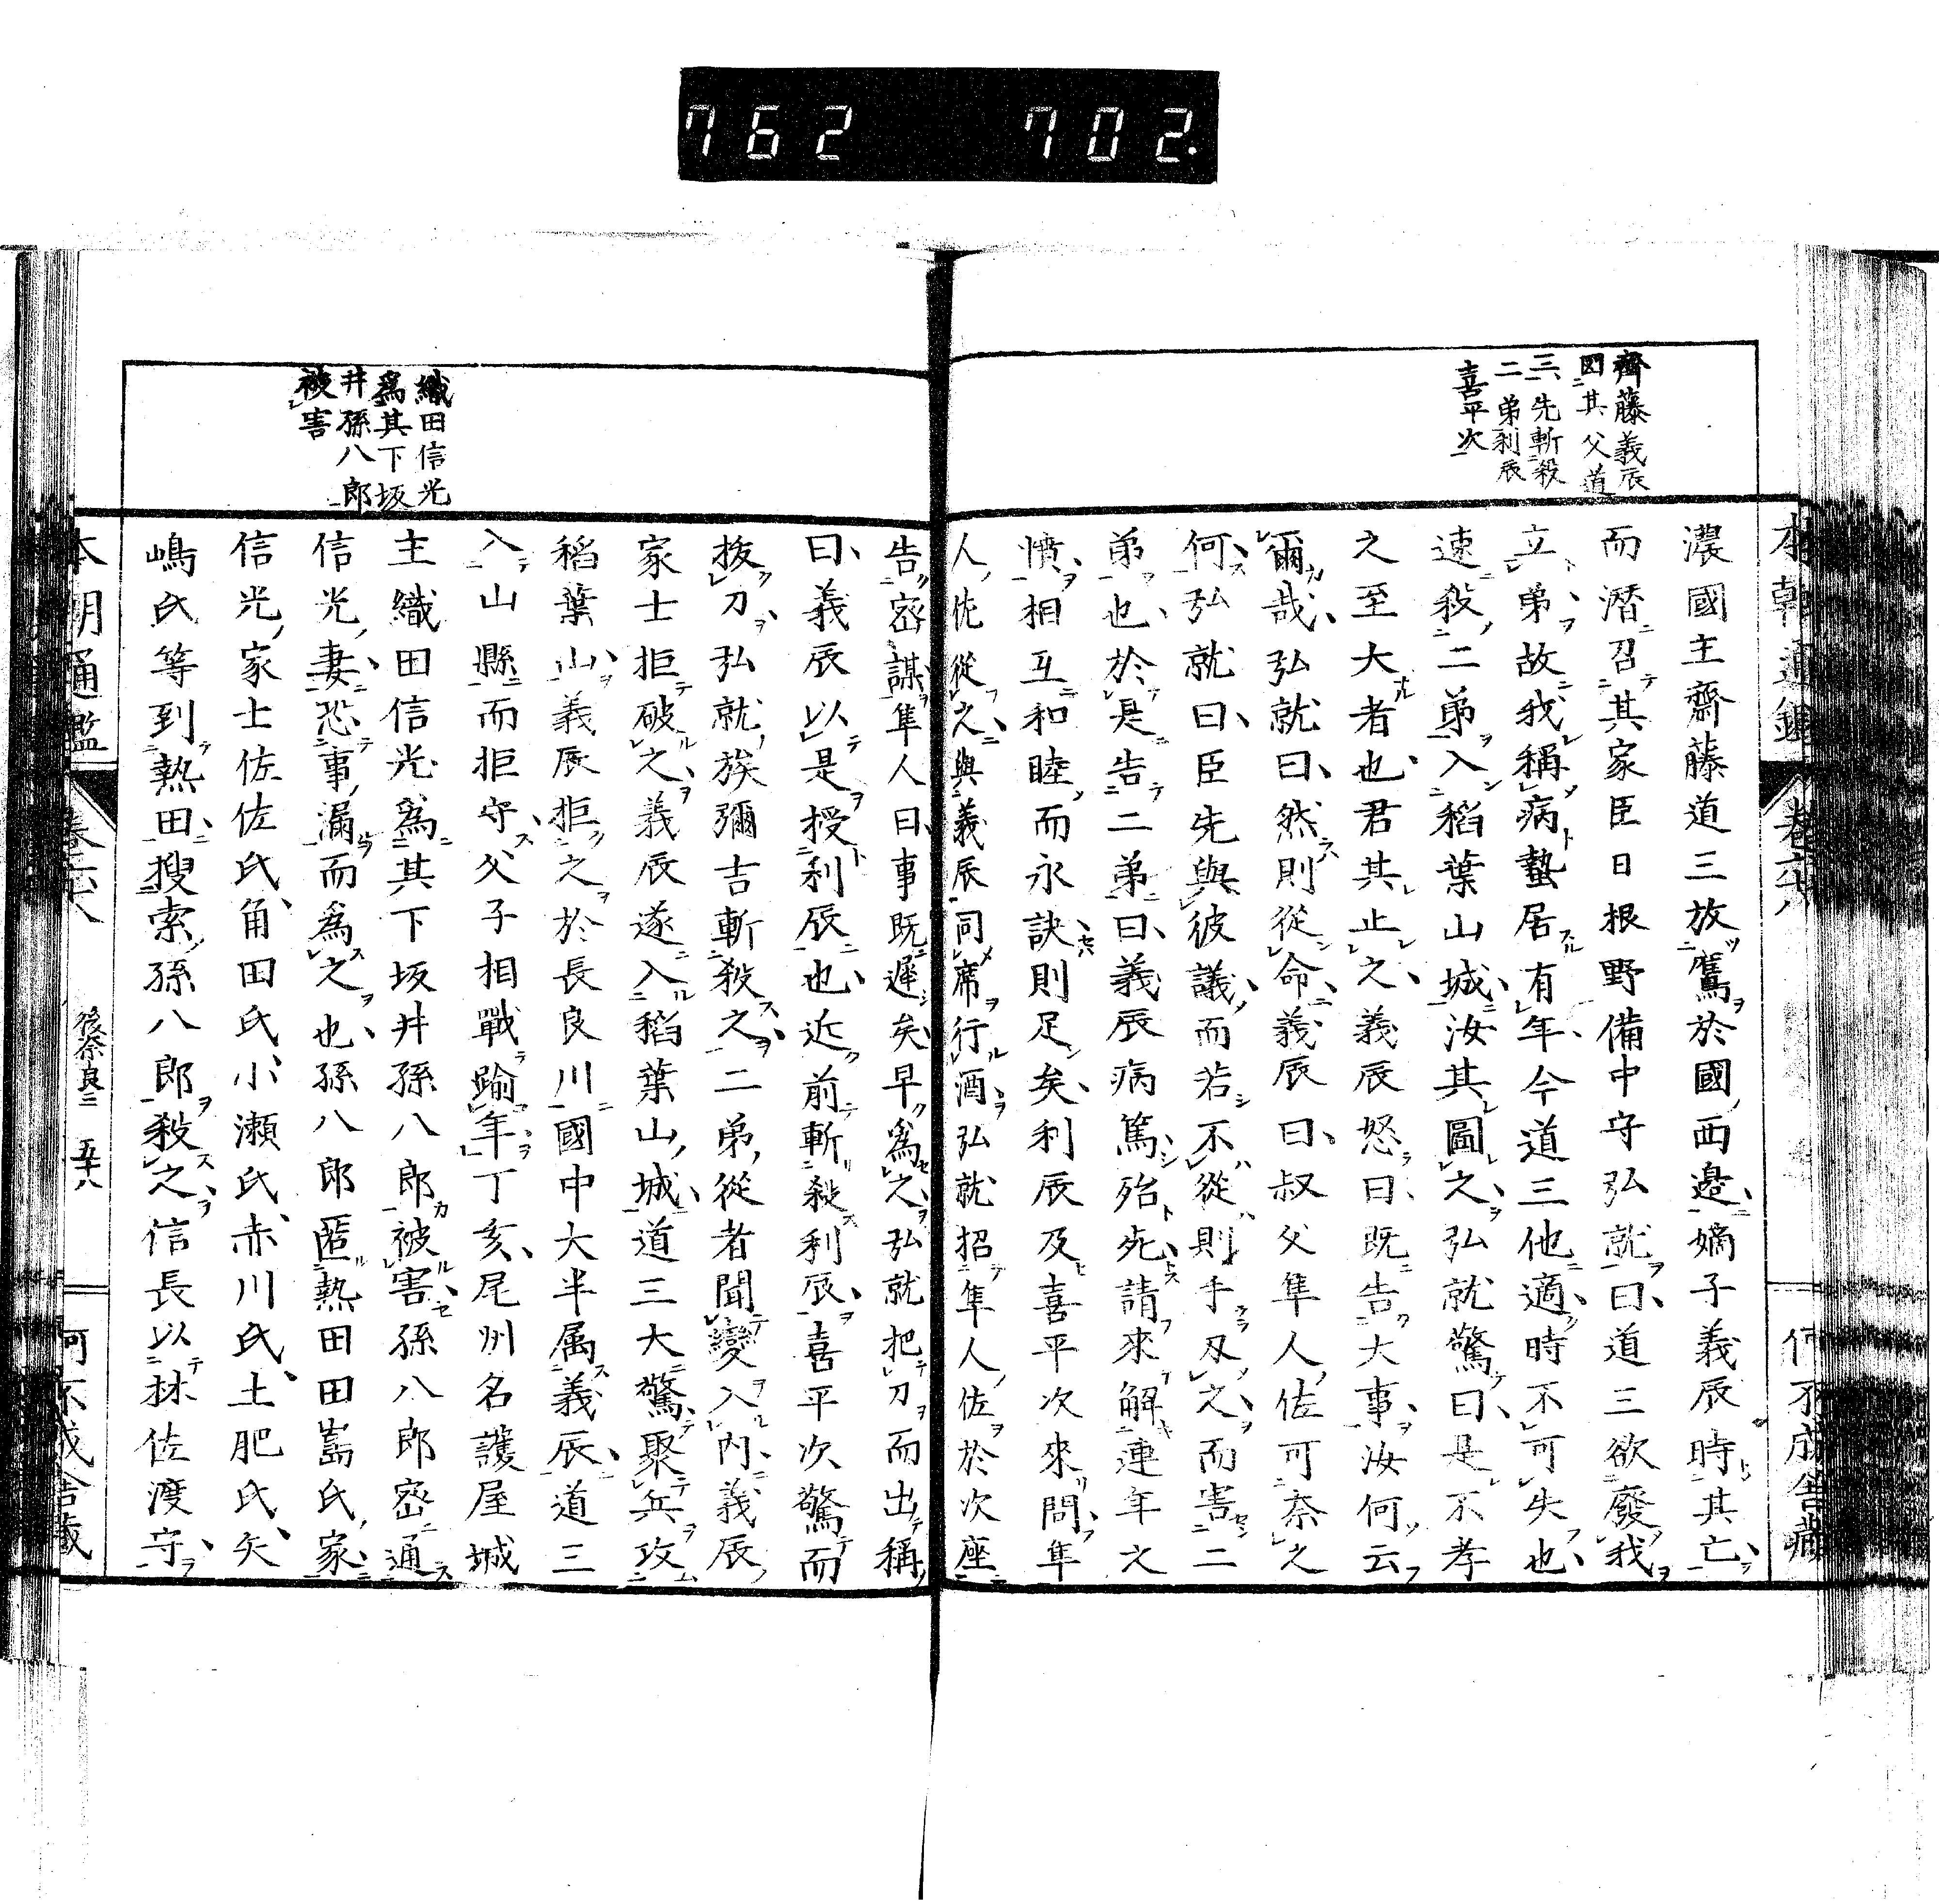 762 702.
齊藤義辰
図其父道
三、先斬殺
二弟利辰
喜平次
濃國主齋藤道三放鷹於國西邉嫡子義辰時其亡
而潜召其家臣日根野備中守弘就曰道三欲廢我
立弟故我稱病蟄居有年今道三他適時不可失也
速殺二弟入稻葉山城汝其圖之弘就驚曰是不孝
之至大者也君其止之義辰怒曰既告大事汝何云
爾哉弘就曰然則從命義辰曰叔父隼人佐可奈之
何弘就曰臣先與彼議而若不從則手刄之而害二
弟也於是告二弟曰義辰病篤殆死請來解連年之
憤相互和睦而永訣則足矣利辰及喜平次來問隼
人佐從之與義辰同席行酒弘就招隼人佐於次座
告密謀隼人曰事既遲矣早爲之弘就把刀而出稱
曰義辰以是授利辰也近前斬殺利辰喜平次驚而
拔刀弘就族彌吉斬殺之二弟從者聞變入內義辰
家士拒破之義辰遂入稻葉山城道三大驚聚兵攻
稻葉山義辰拒之於長良川國中大半属義辰道三
入山縣而拒守父子相戰踰年丁亥尾州名護屋城
主織田信光爲其下坂井孫八郎被害孫八郎密通
信光妻恐事漏而爲之也孫八郎匿熱田田嶌氏家
信光家士佐佐氏角田氏小瀬氏赤川氏土肥氏矢
嶋氏等到熱田搜索孫八郎殺之信長以林佐渡守
織田信光
爲其下坂
井孫八郎
被害
本朝通鑑 卷六十八 後奈良三 五十八